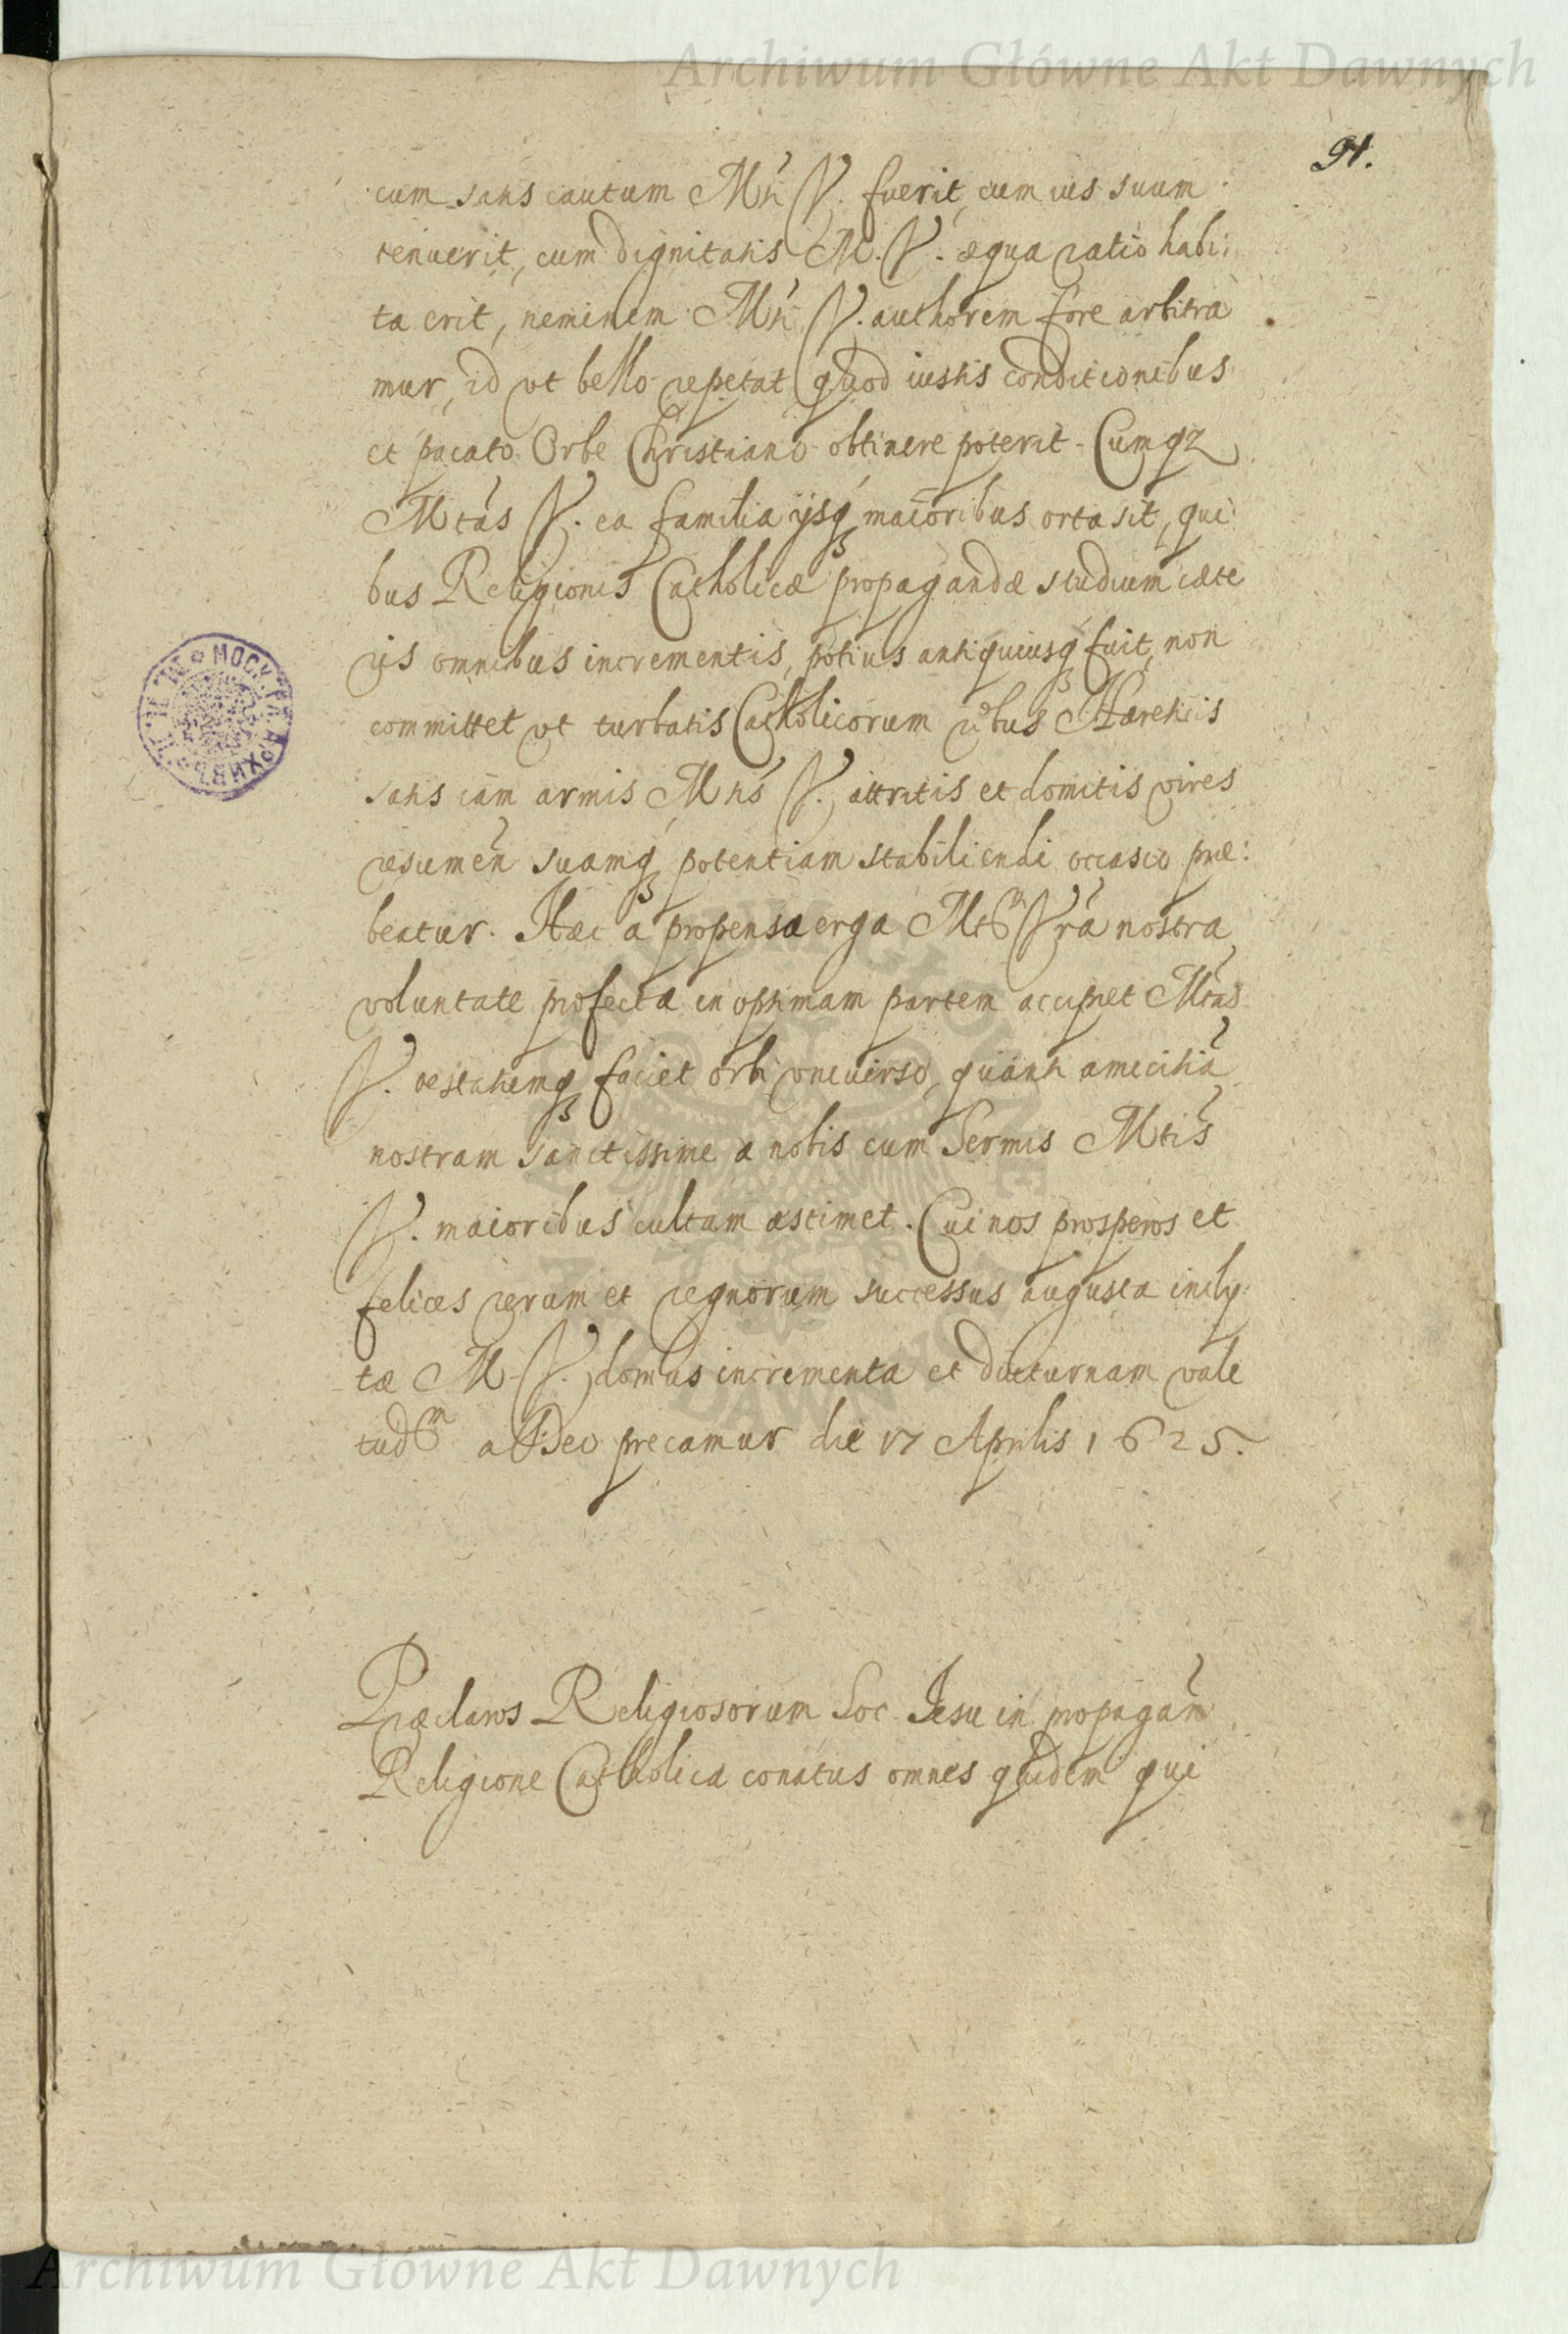 Archiwum Główne Akt Dawnych
91.
cum satis cautum Mti V. fuerit, cum ius suum
tenuerit, cum dignitatis M. V. æqua ratio habi:
ta erit, neminem Mti V. authorem fore arbitra
mur, id vt bello repetat quod iustis conditionibus
et pacato Orbe Christiano obtinere poterit. Cumqz
Mtas V. ea familia ijsq maioribus orta sit, qui
bus Religionis Catholicæ propagandæ studium cæte
ris omnibus incrementis, potius antiquiusq fuit, non
committet vt turbatis Catholicorum rebus Hæreticis
satis iam armis Mtis V. attritis et domitis vires
resumen suamq potentiam stabiliendi occasio præ:
beatur. Hæc a propensa erga Mtem Vra nostra
voluntate profecta in optimam partem accipiet Mtas
V. testatumq faciet orbi vniuerso, quanti amicitia
nostram sanctissime a nobis cum Sermis Mtis
V. maioribus cultam æstimet. Cui nos prosperos et
felices rerum et regnorum successus augusta incly:
tæ M. V. domus incrementa et diuturnam vale
tudem a Deo precamur die 17 Aprilis 1625.
Præclaros Religiosorum Soc. Jesu in propagan
Religione Catholica conatus omnes quidem qui
Archiwum Główne Akt Dawnych